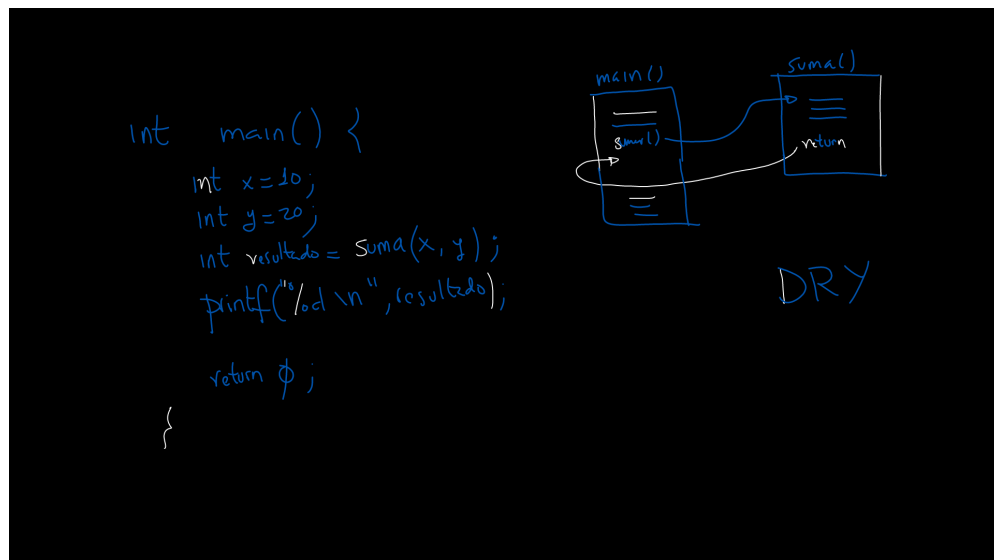 int main() {
int x = 10;
int y = 20;
int resultado = suma(x, y);
printf("%d \n", resultado);
return 0;
}
main()
suma()
suma()
return
DRY